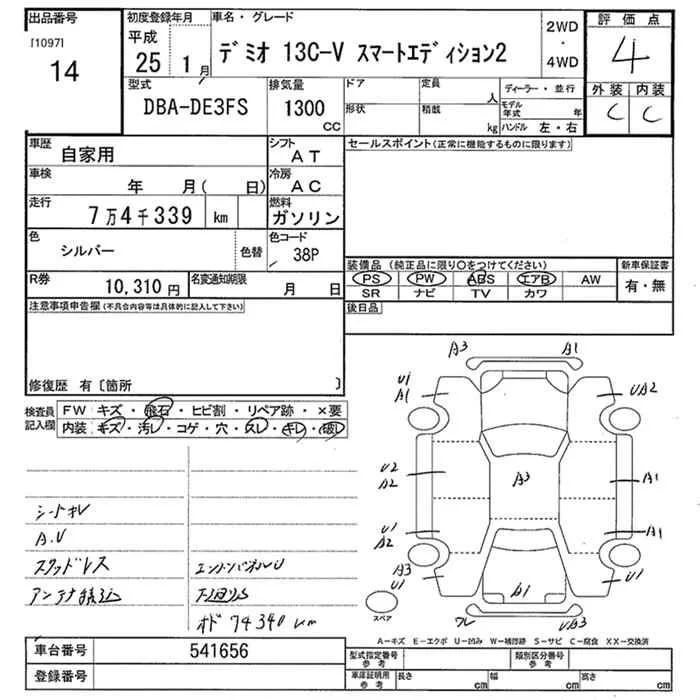 出品番号
[1097]
14
初度登録年月
平成
25 1月
車名・グレード
デミオ 13C-V スマートエディション2
2WD
・
4WD
評価点
4
外装 内装
C C
型式
DBA-DE3FS
排気量
1300
CC
ドア
形状
定員
人
積載
kg
ディーラー・並行
モデル年式 年
ハンドル 左・右
車歴
自家用
シフト
AT
車検
年 月( 日)
冷房
AC
走行
7万4千339 km
燃料
ガソリン
色
シルバー
色替
色コード
38P
R券
10,310円
名変通知期限
月 日
セールスポイント(正常に機能するものに限ります)
装備品(純正品に限り○をつけてください)
PS PW ABS エアB AW
SR ナビ TV カワ
新車保証書
有・無
後日品
注意事項申告欄(不具合内容等は具体的に記入して下さい)
修復歴 有〔箇所 〕
検査員
記入欄
FW キズ・飛石・ヒビ割・リペア跡・×要
内装 キズ・汚レ・コゲ・穴・スレ・キレ・破レ
A3 A1
U1
A1
UA2
U2
A2
A3
A1
U1
A2
A1
A3
U1
U1
スペア
ワレ
UB3
シートキレ
A.U
スタッドレス
エンドパネルU
下廻りS
オド 74340km
A-キズ E-エクボ U-凹み W-補修跡 S-サビ C-腐食 XX-交換済
車台番号
541656
登録番号
型式指定番号
参考
類別区分番号
参考
車庫証明用
参考
長さ cm
幅 cm
高さ cm